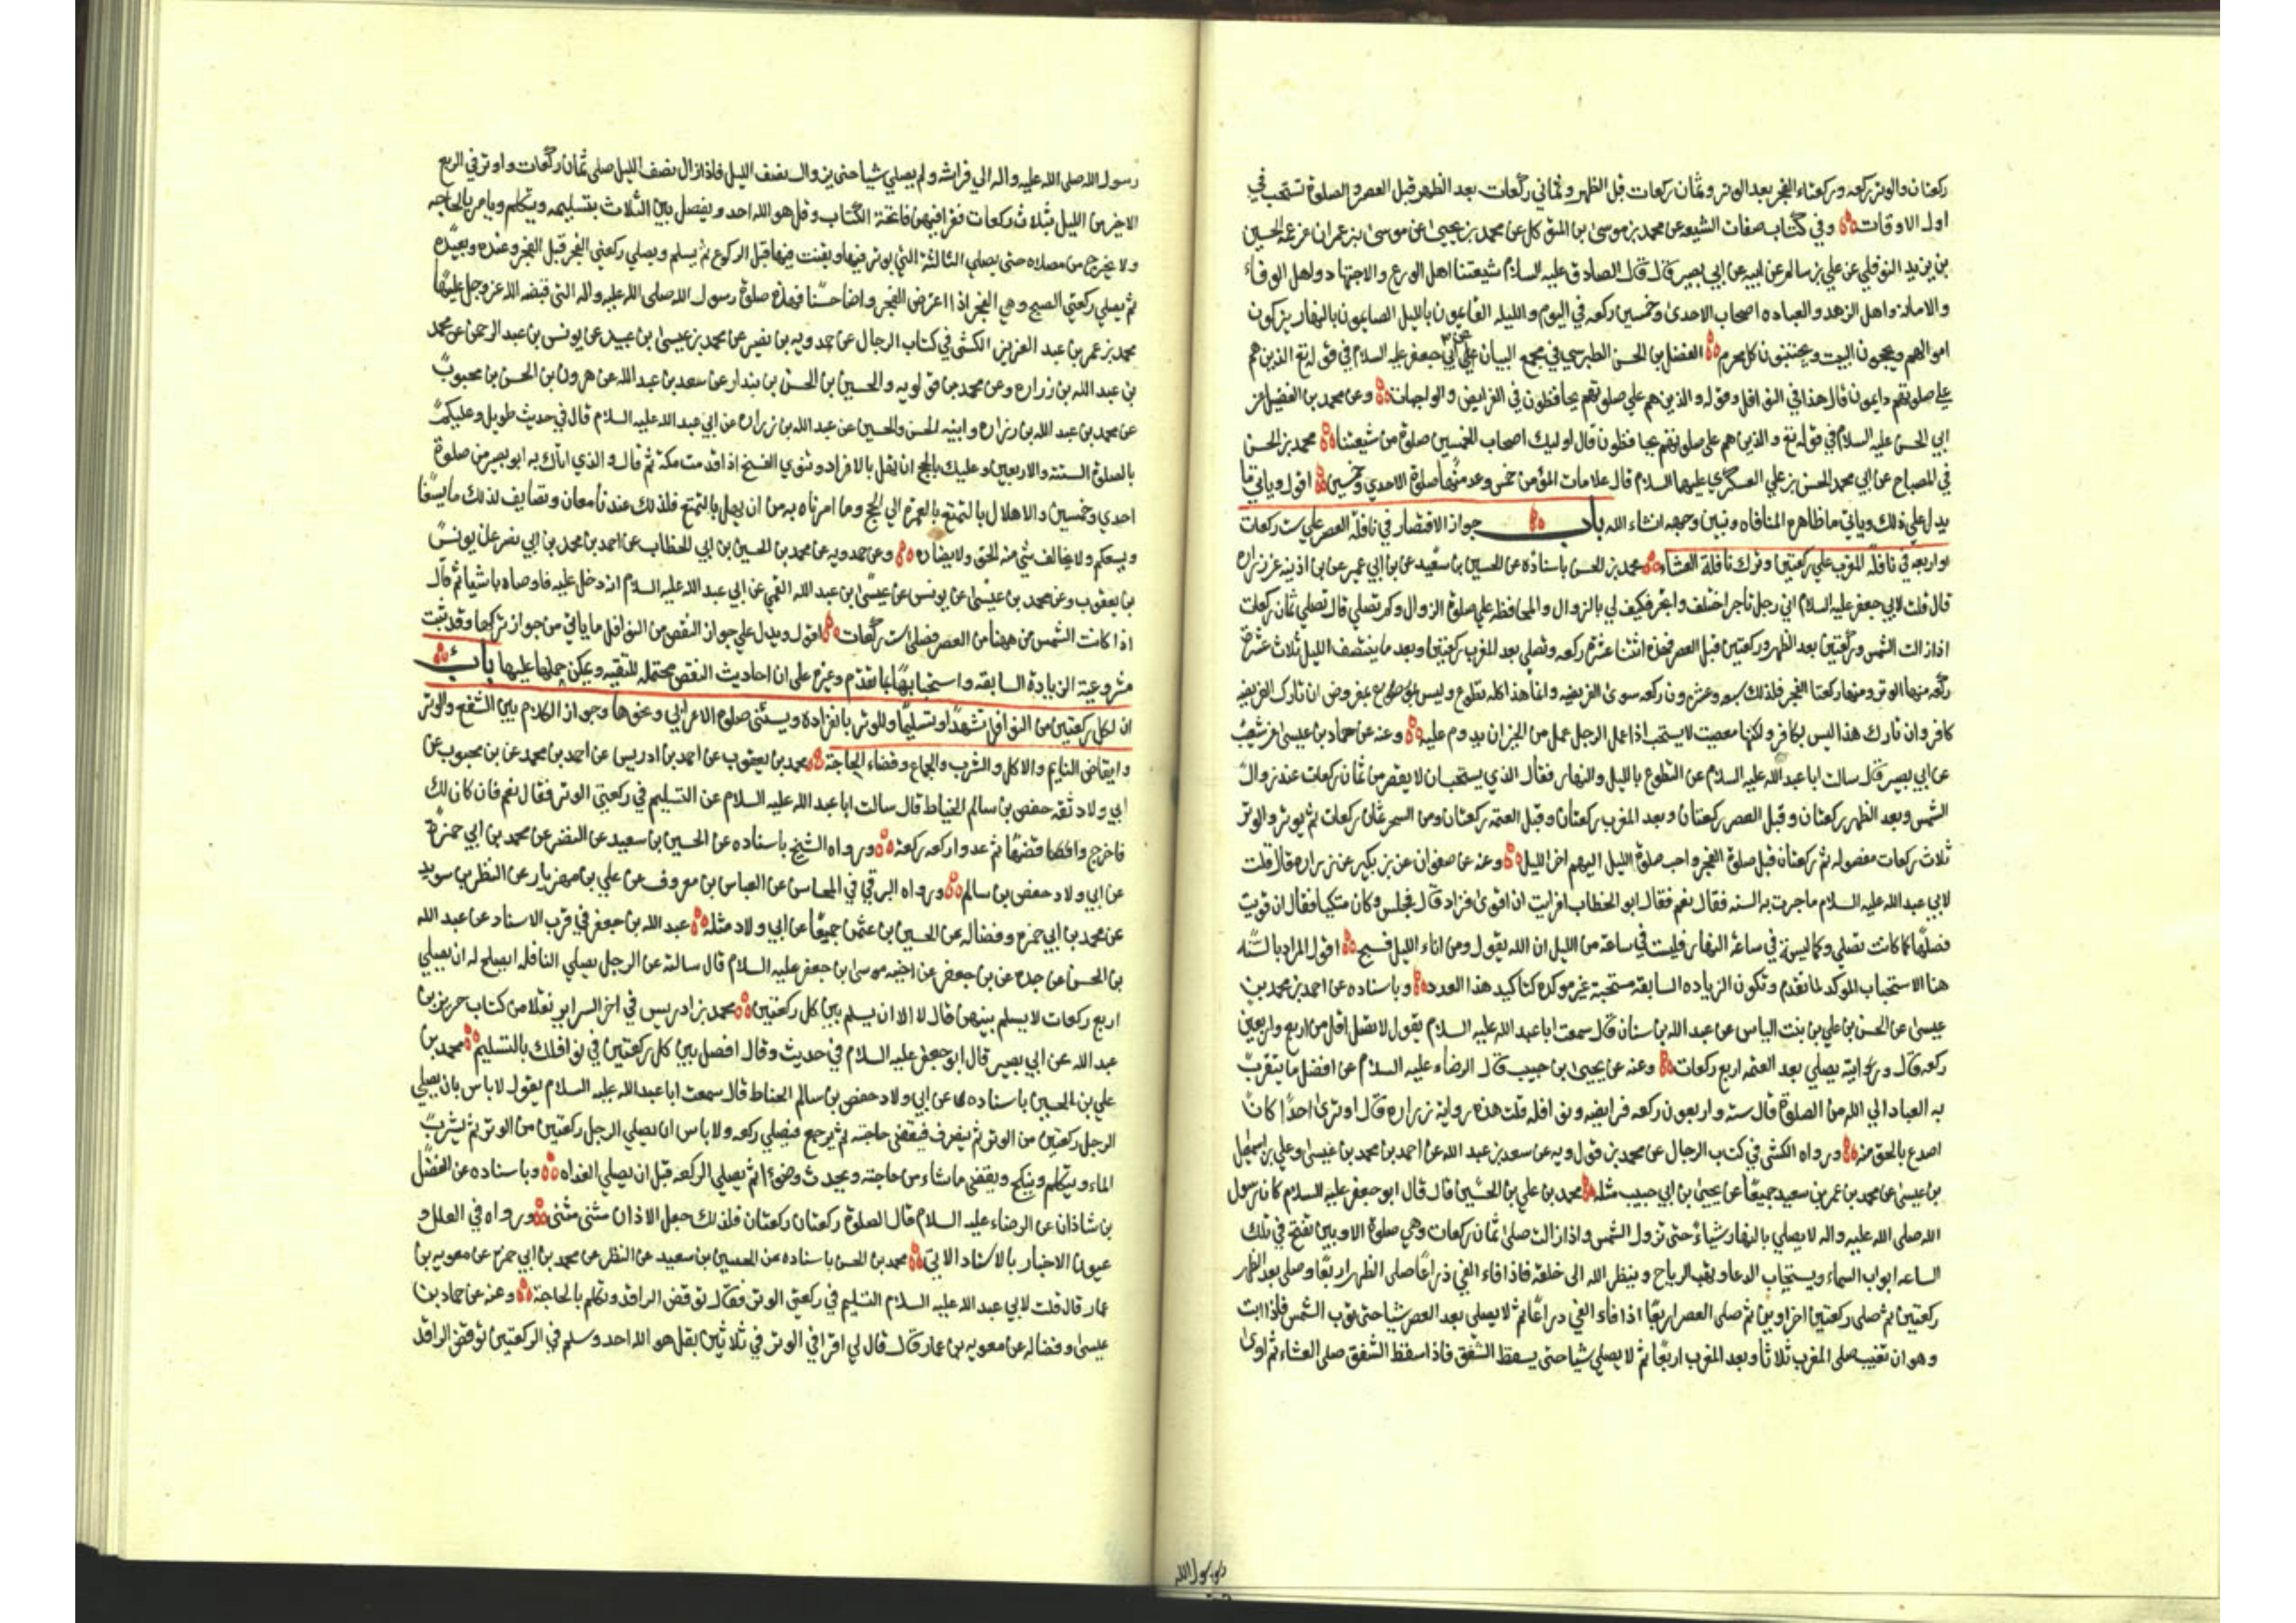 ركعتان والوتر ركعه وركعتاء الفجر بعد الوتر وثمان ركعات قبل الظهر وثماني ركعات بعد الظهر قبل العصر والصلوة تستحب في
اول الاوقات وفي كتاب صفات الشيعه عن محمد بن موسى بن المتوكل عن محمد بن يحيى عن موسى بن عمران عن عمه الحسين
بن يزيد النوفلي عن علي بن سالم عن ابيه عن ابي بصير قال قال الصادق عليه السلام شيعتنا اهل الورع والاجتهاد واهل الوفاء
والامانه واهل الزهد والعباده اصحاب الاحدى وخمسين ركعه في اليوم والليله القايمون بالليل الصايمون بالنهار يزكون
اموالهم ويحجون البيت ويجتنبون كل محرم الفضل بن الحسن الطبرسي في مجمع البيان عن ابي جعفر عليه السلام في قوله تع الذين هم
علي صلوتهم دايمون قال هذا في النوافل وقوله والذين هم علي صلوتهم يحافظون في الفرايض والواجبات وعن محمد بن الفضيل عن
ابي الحسن عليه السلام في قوله تع والذين هم على صلوتهم يحافظون قال اوليك اصحاب الخمسين صلوة من شيعتنا محمد بن الحسن
في المصباح عن ابي محمد الحسن بن علي العسكري عليهما السلام قال علامات المؤمن خمس وعد منها صلوة الاحدي وخمسين اقول وياتي ما
يدل علي ذلك وياتي ما ظاهره المنافاه ونبين وجهه انشاء الله باب جواز الاقتصار في نافلة العصر علي ست ركعات
او اربعه في نافلة المغرب علي ركعتين وترك نافلة العشاء محمد بن الحسن باسناده عن الحسين بن سعيد عن بن ابي عمير عن بن اذينه عن زراره
قال قلت لابي جعفر عليه السلام اني رجل تاجر اختلف واتجر فكيف لي بالزوال والمحافظه علي صلوة الزوال وكم تصلي قال تصلي ثمان ركعات
اذا زالت الشمس وركعتين بعد الظهر وركعتين قبل العصر فهذه اثنتا عشره ركعه وتصلي بعد المغرب ركعتين وبعد ما ينتصف الليل ثلاث عشرة
ركعه منها الوتر ومنها ركعتا الفجر فذلك سبع وعشرون ركعه سوى الفريضه وانما هذا كله تطوع وليس بمفروض ان تارك الفريضه
كافر وان تارك هذا ليس بكافر ولكنها معصيت لايستحب اذا عمل الرجل عمل من الخير ان يدوم عليه وعنه عن حماد بن عيسى عن شعيب
عن ابي بصير قال سالت ابا عبد الله عليه السلام عن التطوع بالليل والنهار فقال الذي يستحب ان لا يقصر من ثمان ركعات عند زوال
الشمس وبعد الظهر ركعتان وقبل العصر ركعتان وبعد المغرب ركعتان وقبل العتمه ركعتان ومن السحر ثمان ركعات ثم يوتر والوتر
ثلاث ركعات مفصوله ثم ركعتان قبل صلوة الفجر واحب صلوة الليل اليهم اخر الليل وعنه عن صفوان عن بن بكير عن زراره قال قلت
لابي عبد الله عليه السلام ما جرت به السنه فقال نعم فقال ابو الخطاب افرايت ان اقوى فزاد قال فجلس وكان متكيا فقال ان قويت
فصلها كما كانت تصلي وكما ليست في ساعة النهار فليست في ساعة من الليل ان الله يقول ومن اناء الليل فسبح اقول المراد بالسنه
هنا الاستحباب الموكد لما تقدم وتكون الزياده السابقه مستحبة غير موكده كتاكيد هذا العدد وباسناده عن احمد بن محمد بن
عيسى عن الحسن بن علي بن بنت الياس عن عبد الله بن سنان قال سمعت ابا عبد الله عليه السلام يقول لا تصل اقل من اربع واربعين
ركعه قال ورايته يصلي بعد العتمه اربع ركعات وعنه عن يحيى بن حبيب قال الرضاء عليه السلام عن افضل ما يتقرب
به العباد الي الله من الصلوة قال سته واربعون ركعه فرايضه ونوافله قلت هذه رواية زراره قال اوترى احدا كان
اصدع بالحق منه ورواه الكشي في كتب الرجال عن محمد بن قولويه عن سعد بن عبد الله عن احمد بن محمد بن عيسى وعلي بن اسمعيل
بن عيسى عن محمد بن عمر بن سعيد جميعا عن يحيى بن ابي حبيب مثله محمد بن علي بن الحسين قال قال ابو جعفر عليه السلام كان رسول
الله صلى الله عليه واله لا يصلي بالنهار شياء حتى تزول الشمس واذا زالت صلى ثمان ركعات وهي صلوة الاوبين تفتح في تلك
الساعه ابواب السماء ويستجاب الدعا وتهب الرياح وينظر الله الى خلقه فاذا فاء الفي ذراعا صلى الظهر اربعا وصلى بعد الظهر
ركعتين ثم صلى ركعتين اخراوين ثم صلى العصر اربعا اذا فاء الفي ذراعا ثم لا يصلي بعد العصر شيا حتى توب الشمس فاذا ابت
وهو ان تغيب صلى المغرب ثلاثا وبعد المغرب اربعا ثم لا يصلي شيا حتى يسقط الشفق فاذا سقط الشفق صلى العشاء ثم اوى
رسول الله
رسول الله صلى الله عليه واله الي فراشه ولم يصلي شيا حتى يزوال نصف الليل فاذا زال نصف الليل صلى ثمان ركعات واوتر في الربع
الاخر من الليل بثلاث ركعات فقرا فيهن فاتحة الكتاب وقل هو الله احد ويفصل بين الثلاث بتسليمه ويتكلم ويامر بالحاجه
ولا يخرج من مصلاه حتى يصلي الثالثة التي يوتر فيها ويقنت فيها قبل الركوع ثم يسلم ويصلي ركعتي الفجر قبل الفجر وعنده وبعيده
ثم يصلي ركعتي الصبح وهي الفجر اذا اعترض الفجر واضاحسنا فهذه صلوة رسول الله صلى الله عليه واله التي قبضه الله عز وجل عليها
محمد بن عمر بن عبد العزيز الكشي في كتاب الرجال عن حمدويه بن نصير عن محمد بن عيسى بن عبيد عن يونس بن عبد الرحمن عن محمد
بن عبد الله بن زراره وعن محمد بن قولويه والحسين بن الحسن بن بندار عن سعد بن عبد الله عن هرون بن الحسن بن محبوب
عن محمد بن عبد الله بن زراره وابنيه الحسن والحسين عن عبد الله بن زراره عن ابي عبد الله عليه السلام قال في حديث طويل وعليك
بالصلوة الستة والاربعين وعليك بالحج ان يهل بالافراد وتنوي الفسخ اذا قدمت مكه ثم قال والذي اتاك به ابو بصير من صلوة
احدي وخمسين والاهلال بالتمتع بالعمره الي الحج وما امرناه به من ان يهل بالتمتع فلذلك عندنا معان وتصاريف لذلك ما يسعنا
ويسعكم ولا يخالف شي منه الحق ولا يضاره وعن حمدويه عن محمد بن الحسين بن ابي الخطاب عن احمد بن محمد بن ابي نصر عن يونس
بن يعقوب وعن محمد بن عيسى عن يونس عن عيسى بن عبد الله القمي عن ابي عبد الله عليه السلام انه دخل عليه فاوصاه باشيا ثم قال
اذا كانت الشمس من ههنا من العصر فصلي ست ركعات اقول ويدل علي جواز النقص من النوافل ما ياتي من جواز تركها وقد ثبت
مشروعية الزيادة السابقه واستحبابها بما تقدم وغيره على ان احاديث النقص محتمله للتقيه ويمكن حملها عليها باب
ان لكل ركعتين من النوافل تشهدا وتسليما وللوتر بانفراده ويستثنى صلوة الاعرابي ونحوها وجواز الكلام بين الشفع والوتر
وايقاض النايم والاكل والشرب والجماع وقضاء الحاجة محمد بن يعقوب عن احمد بن ادريس عن احمد بن محمد عن بن محبوب عن
ابي ولاد ثقه حفص بن سالم الخياط قال سالت ابا عبد الله عليه السلام عن التسليم في ركعتي الوتر فقال نعم فان كان لك
فاخرج واقضها ثم عد واركعه ركعة ورواه الشيخ باسناده عن الحسين بن سعيد عن النضر عن محمد بن ابي حمزة
عن ابي ولاد حفص بن سالم ورواه البرقي في المحاسن عن العباس بن معروف عن علي بن مهزيار عن النظر بن سويد
عن محمد بن ابي حمزه وفضاله عن الحسين بن عثمن جميعا عن ابي ولاد مثله عبد الله بن جعفر في قرب الاسناد عن عبد الله
بن الحسن عن جده عن بن جعفر عن اخيه موسى بن جعفر عليه السلام قال سالته عن الرجل يصلي النافله ايصلح له ان يصلي
اربع ركعات لا يسلم بينهن قال لا الا ان يسلم بين كل ركعتين محمد بن ادريس في اخر السراير نقلا من كتاب حريز بن
عبد الله عن ابي بصير قال ابو جعفر عليه السلام في حديث وقال افصل بين كل ركعتين في نوافلك بالتسليم محمد بن
علي بن الحسين باسناده عن ابي ولاد حفص بن سالم الحناط قال سمعت ابا عبد الله عليه السلام يقول لا باس بان يصلي
الرجل ركعتين من الوتر ثم ينصرف فيقضي حاجته ثم يرجع فيصلي ركعه ولا باس ان يصلي الرجل ركعتين من الوتر ثم يشرب
الماء ويتكلم وينكح ويقضي ماشاء من حاجته ويحدث وضوءا ثم يصلي الركعه قبل ان يصلي الغداه وباسناده عن الفضل
بن شاذان عن الرضاء عليه السلام قال الصلوة ركعتان ركعتان فلذلك جعل الاذان مثنى مثنى ورواه في العلل و
عيون الاخبار بالاسناد الاتي محمد بن الحسن باسناده عن الحسين بن سعيد عن النظر عن محمد بن ابي حمزه عن معويه بن
عمار قال قلت لابي عبد الله عليه السلام التسليم في ركعتي الوتر فقال توقض الراقد وتكلم بالحاجة وعنه عن حماد بن
عيسى وفضاله عن معويه بن عمار قال قال لي اقرا في الوتر في ثلاثتهن بقل هو الله احد وسلم في الركعتين توقض الراقد